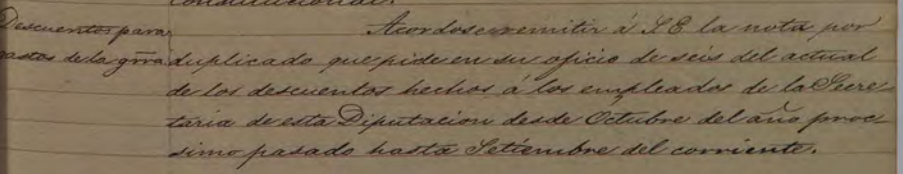 constitucional.
Descuentos para
gastos de la grra
Acordose remitir á S E la nota por
duplicado que pide en su oficio de seis del actual
de los descuentos hechos á los empleados de la Secre
taria de esta Diputacion desde Octubre del año proc
simo pasado hasta Setiembre del corriente.